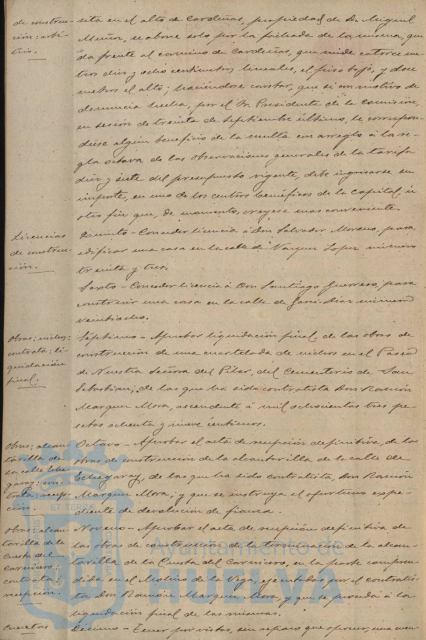 de construc-
ción: arbi-
trio.
sita en el alto de Cardeñas, propiedad de D. Miguel
Muñoz, se abone solo por la fachada de la misma, que
da frente al camino de Cardeñas, que mide catorce me-
tros diez y ocho centímetros lineales, el piso bajo, y doce
metros el alto; haciéndose constar, que si con motivo de
denuncia hecha, por el Sr. Presidente de la Comisión,
en sesión de treinta de Septiembre último, le correspon-
diese algún beneficio de la multa con arreglo a la re-
gla octava de las observaciones generales de la tarifa
diez y siete del presupuesto vigente, debe ingresarse su
importe, en uno de los centros benéficos de la capital, u
otro fin que, de momento, creyese mas conveniente.
Licencias
de construc-
ción.
Quinto - Conceder licencia a Don Salvador Moreno, para
edificar una casa en la calle de Vazquez Lopez número
treinta y tres.
Sexto - Conceder licencia a Don Santiago Guerrero, para
construir una casa en la calle de número
veintiocho.
Obras; nichos;
contrata; li-
quidación
final.
Séptimo - Aprobar liquidación final de las obras de
construcción de una cuartelada de nichos en el Paseo
de Nuestra Señora del Pilar, del Cementerio de San
Sebastian, de las que ha sido contratista Don Ramón
Marquez Mora, ascendente a mil ochocientas tres pe-
setas ochenta y nueve centimos.
Obras; alcan-
tarilla de
la calle Eche-
garay; con-
trata; recep-
ción.
Octavo - Aprobar el acta de recepción definitiva, de las
obras de construcción de la alcantarilla de la calle de
Echegaray, de las que ha sido contratista, Don Ramón
Marquez Mora; y que se instruya el oportuno expe-
diente de devolución de fianza.
Obras; alcan-
tarilla de la
Cuesta del
Carnicero;
contrata;
recepción.
Noveno - Aprobar el acta de recepción definitiva de
las obras de construcción de la terminación de la alcan-
tarilla de la Cuesta del Carnicero, en la parte compren-
dida en el Molino de la Vega, ejecutadas por el contratis-
ta Don Ramón Marquez Mora, y que se proceda a la
liquidación final de las mismas.
Cuentas
Décimo - Tener por vistas, sin reparo que oponer, una cuen-
Ayuntamiento de